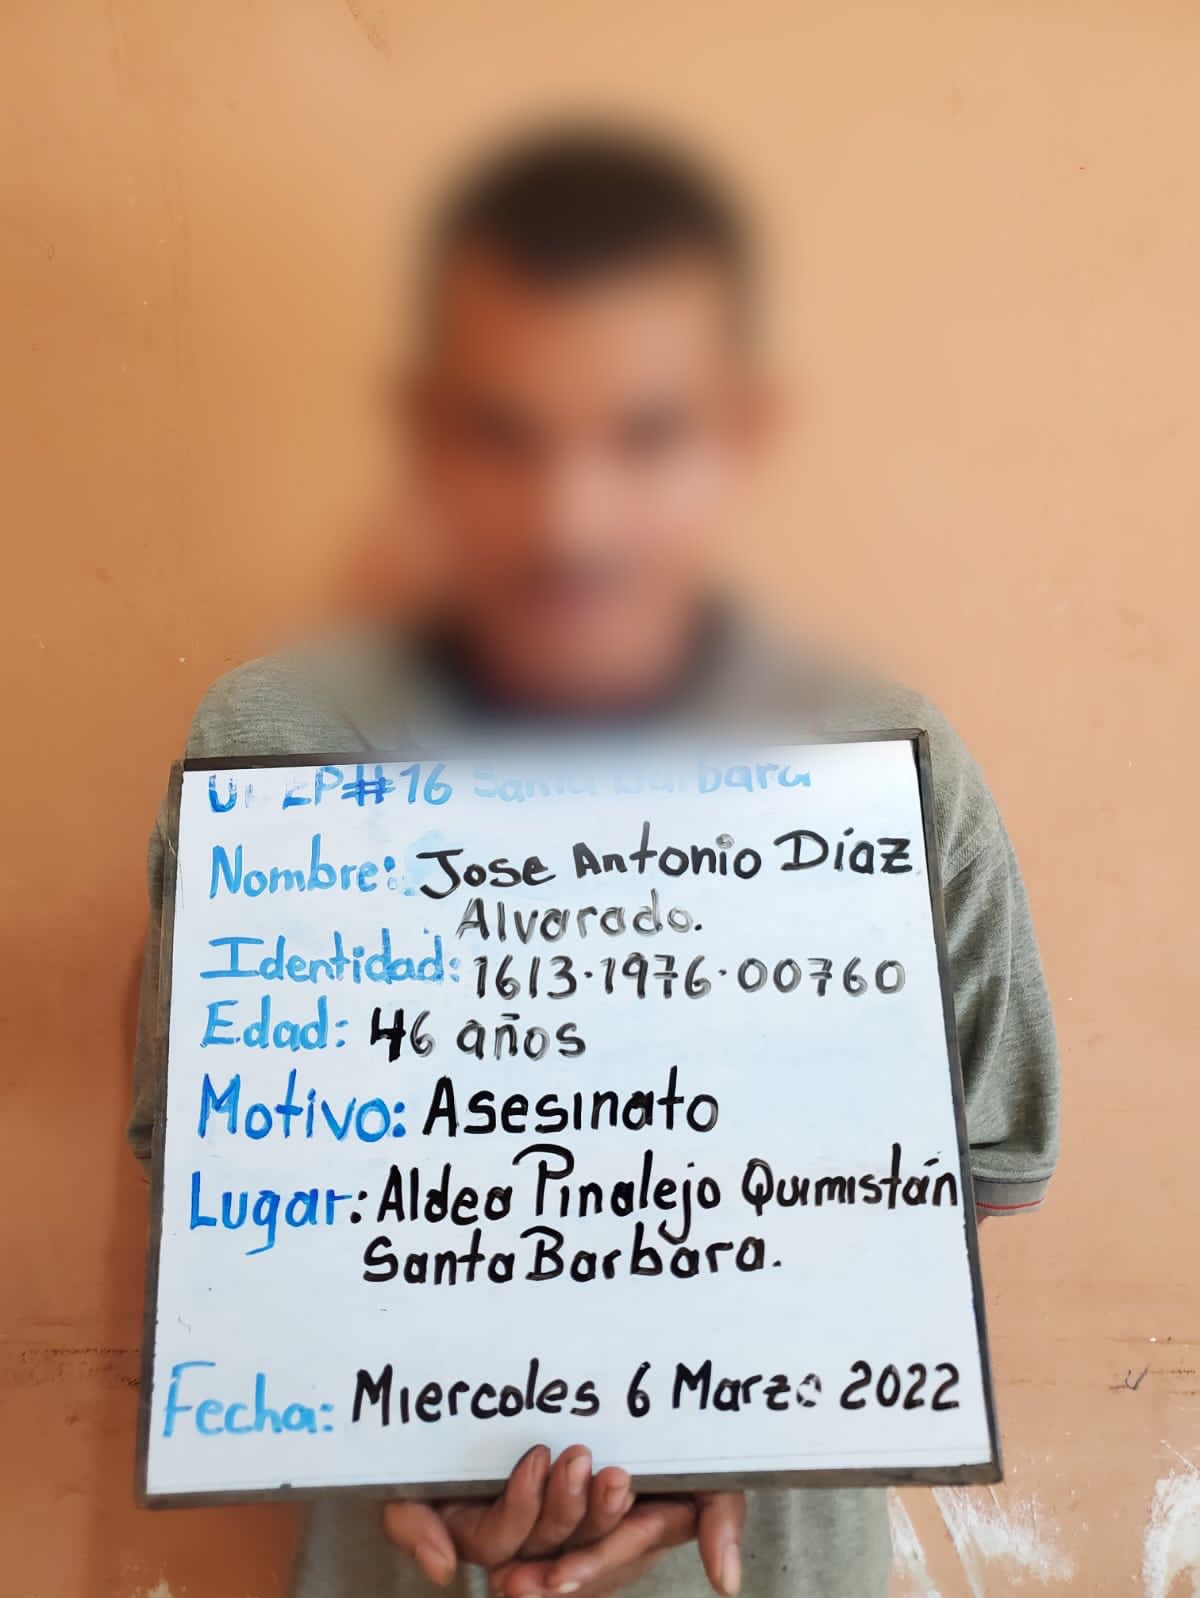 #16 Santa Barbara
Nombre: Jose Antonio Díaz
Alvarado.
Identidad: 1613-1976-00760
Edad: 46 años
Motivo: Asesinato
Lugar: Aldea Pinalejo Quimistán
Santa Barbara.
Fecha: Miercoles 6 Marzo 2022